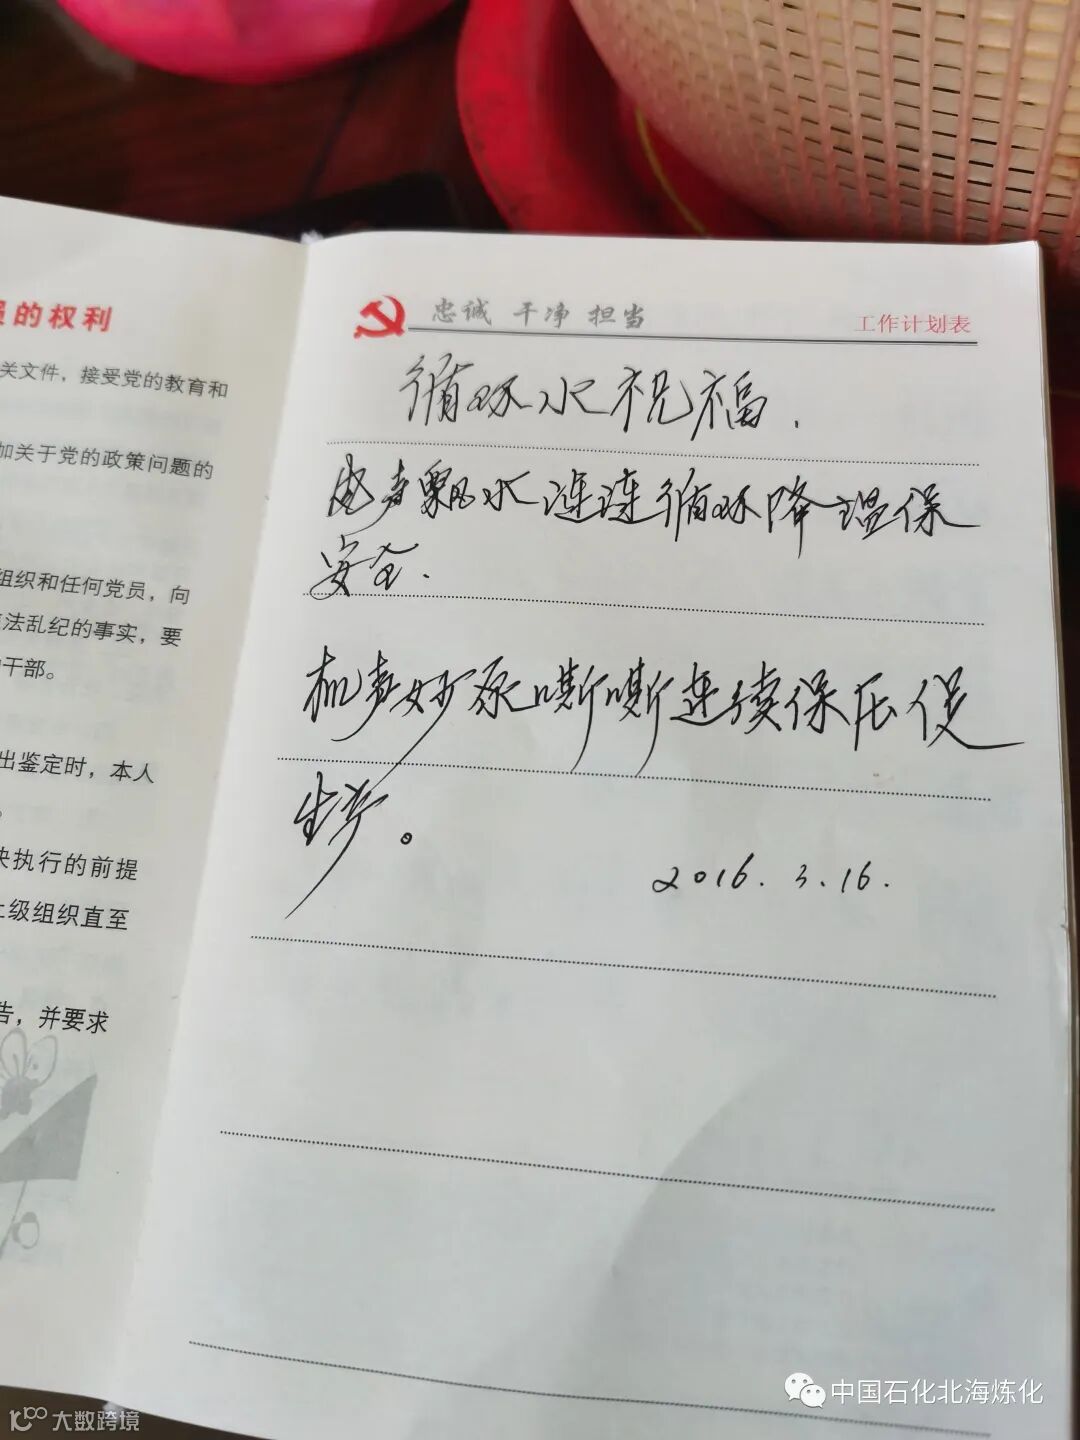 员的权利
关文件，接受党的教育和
加关于党的政策问题的
组织和任何党员，向
法乱纪的事实，要
干部。
出鉴定时，本人
。
决执行的前提
上级组织直至
告，并要求
忠诚 干净 担当
工作计划表
循环水祝福.
声飘水涟涟循环降温保
安全.
机声妙泵嘶嘶连续保压促
生产。
2016.3.16.
中国石化北海炼化
大数跨境